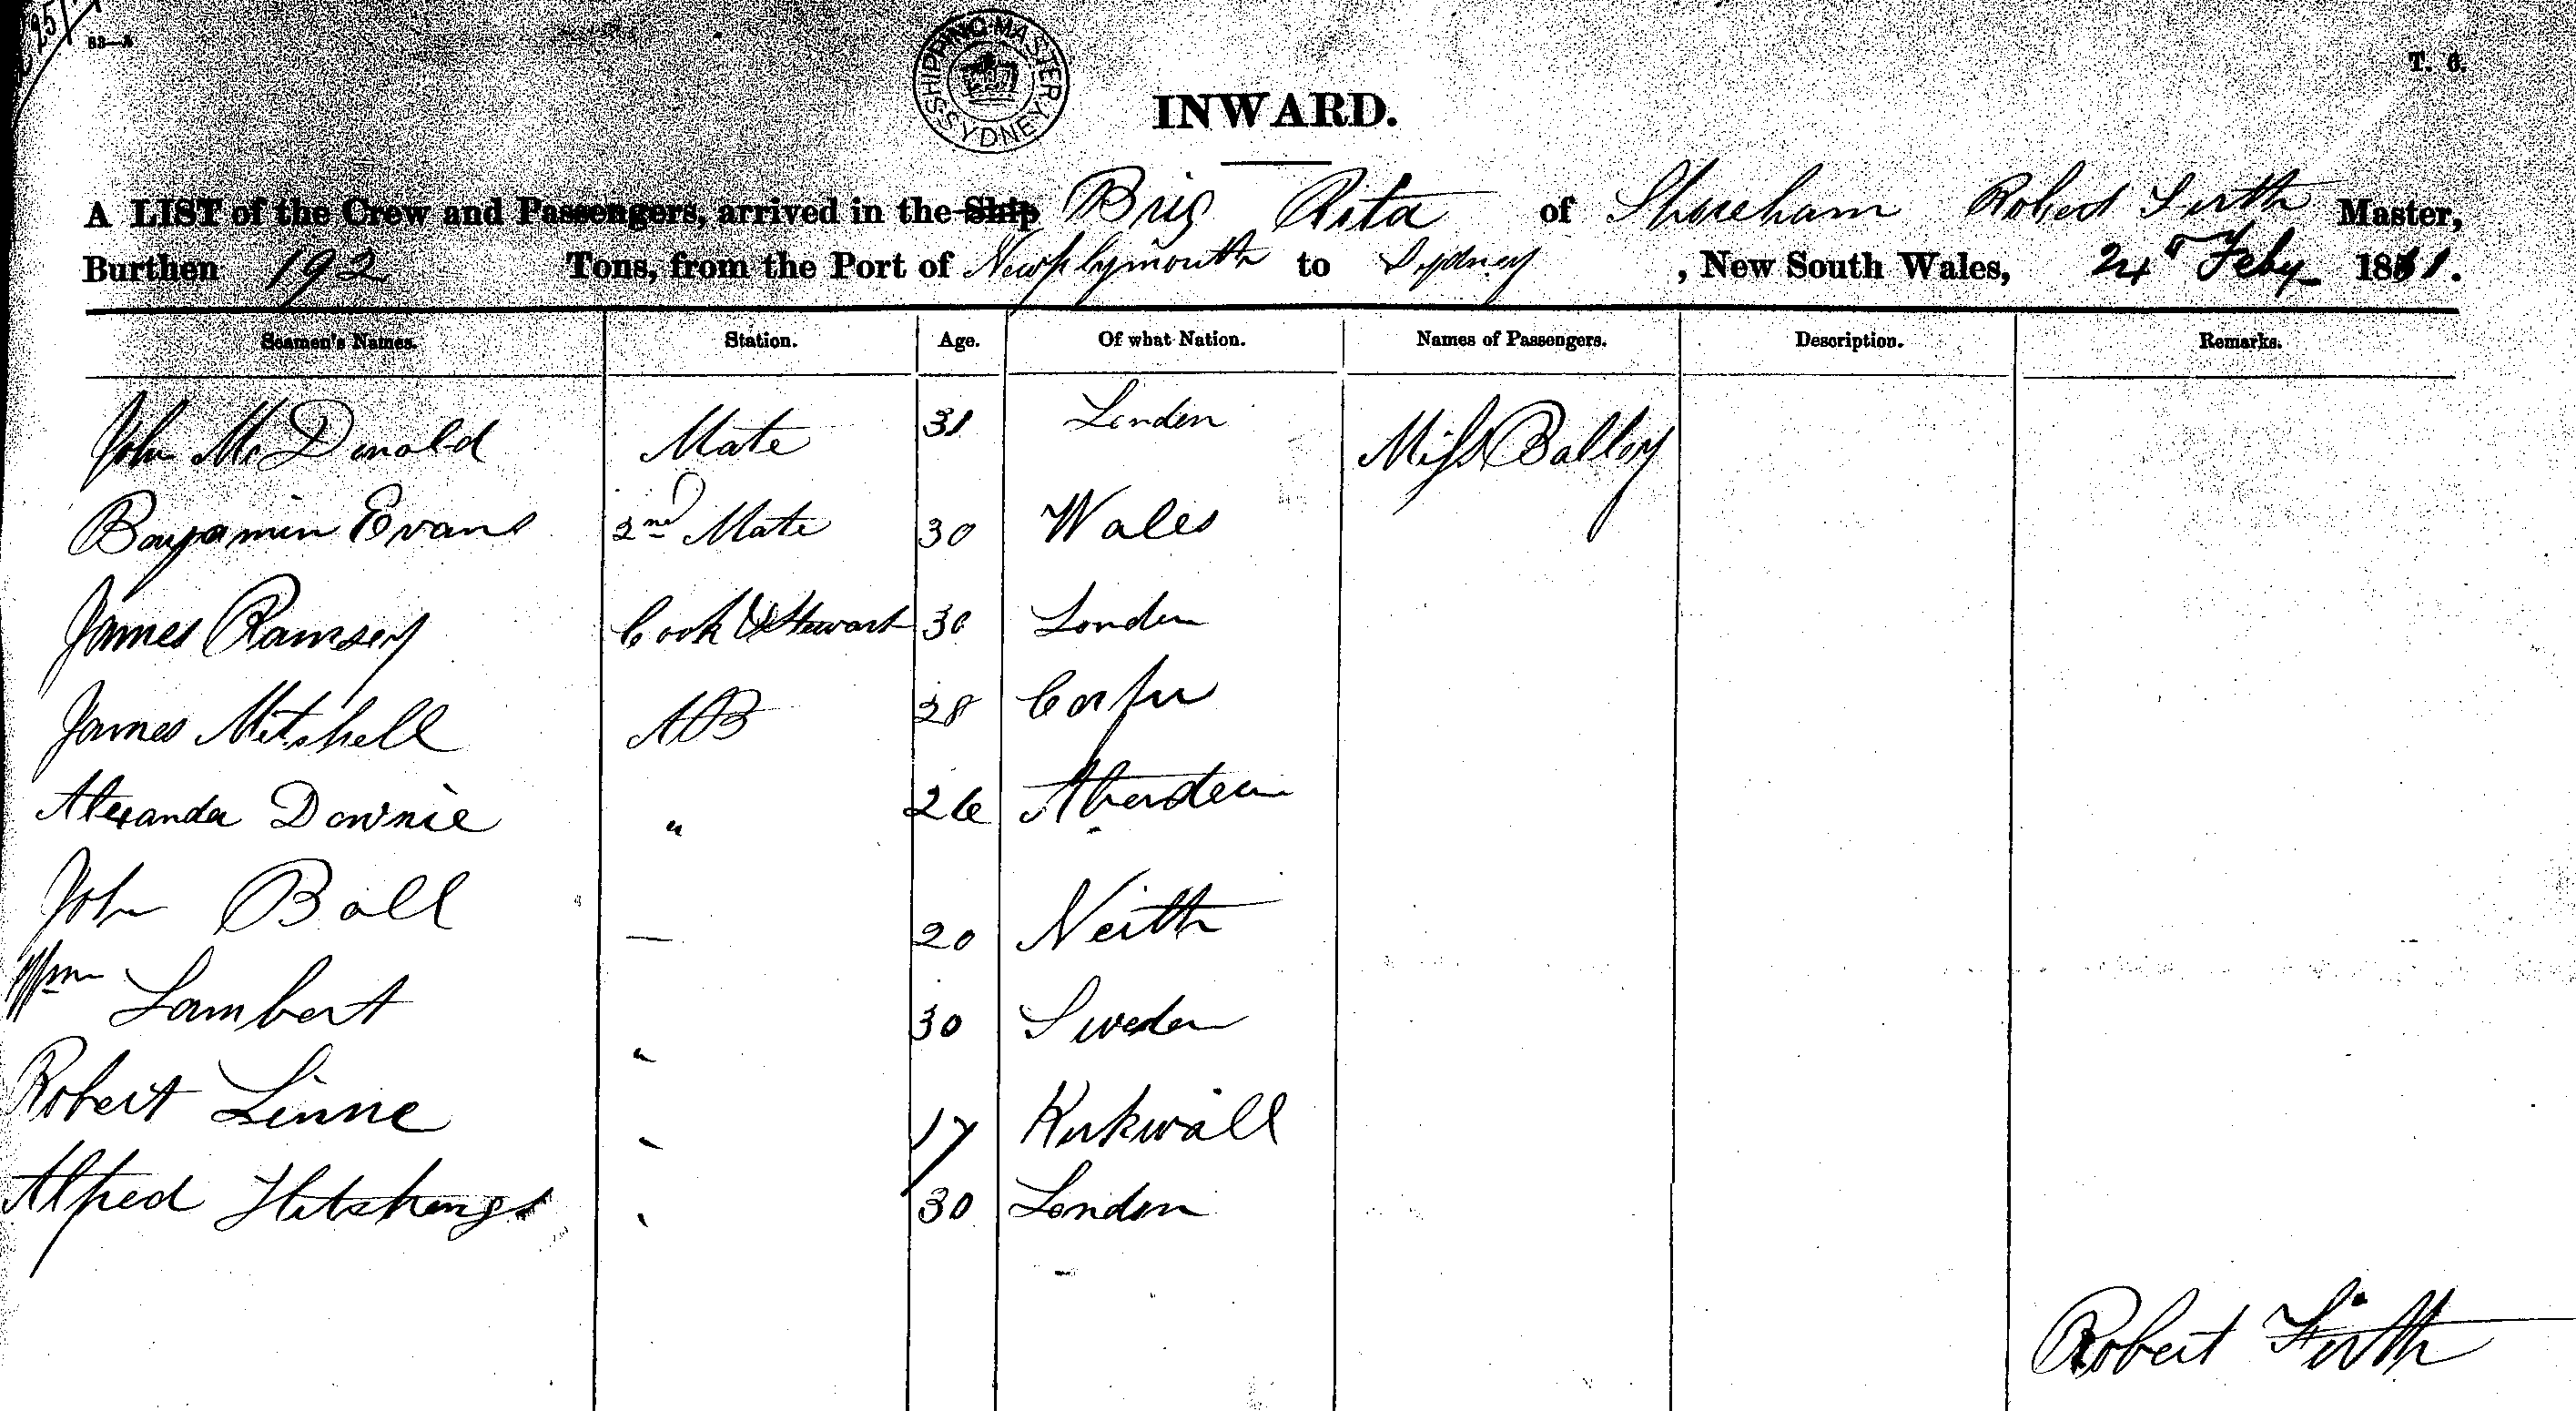 63—A
SHIPPING MASTER SYDNEY
T. 6.
INWARD.
A LIST of the Crew and Passengers, arrived in the Ship Brig Rita of Shoreham Robert Firth Master,
Burthen 192 Tons, from the Port of Newplymouth to Sydney, New South Wales, 24th Feby 1861.
Seamen's Names. Station. Age. Of what Nation. Names of Passengers. Description. Remarks.
John McDonald Mate 31 London Miss
Benjamin Evans 2nd Mate 30 Wales
James Ramsey Cook & Stewart 30 London
James Mitshell AB 28 Corfu
Alexander Downie " 26 Aberdeen
John Ball — 20 Neith
Wm Lambert " 30 Sweden
Robert Linne " 17 Kirkwall
Alfred Hitshengs " 30 London
Robert Firth